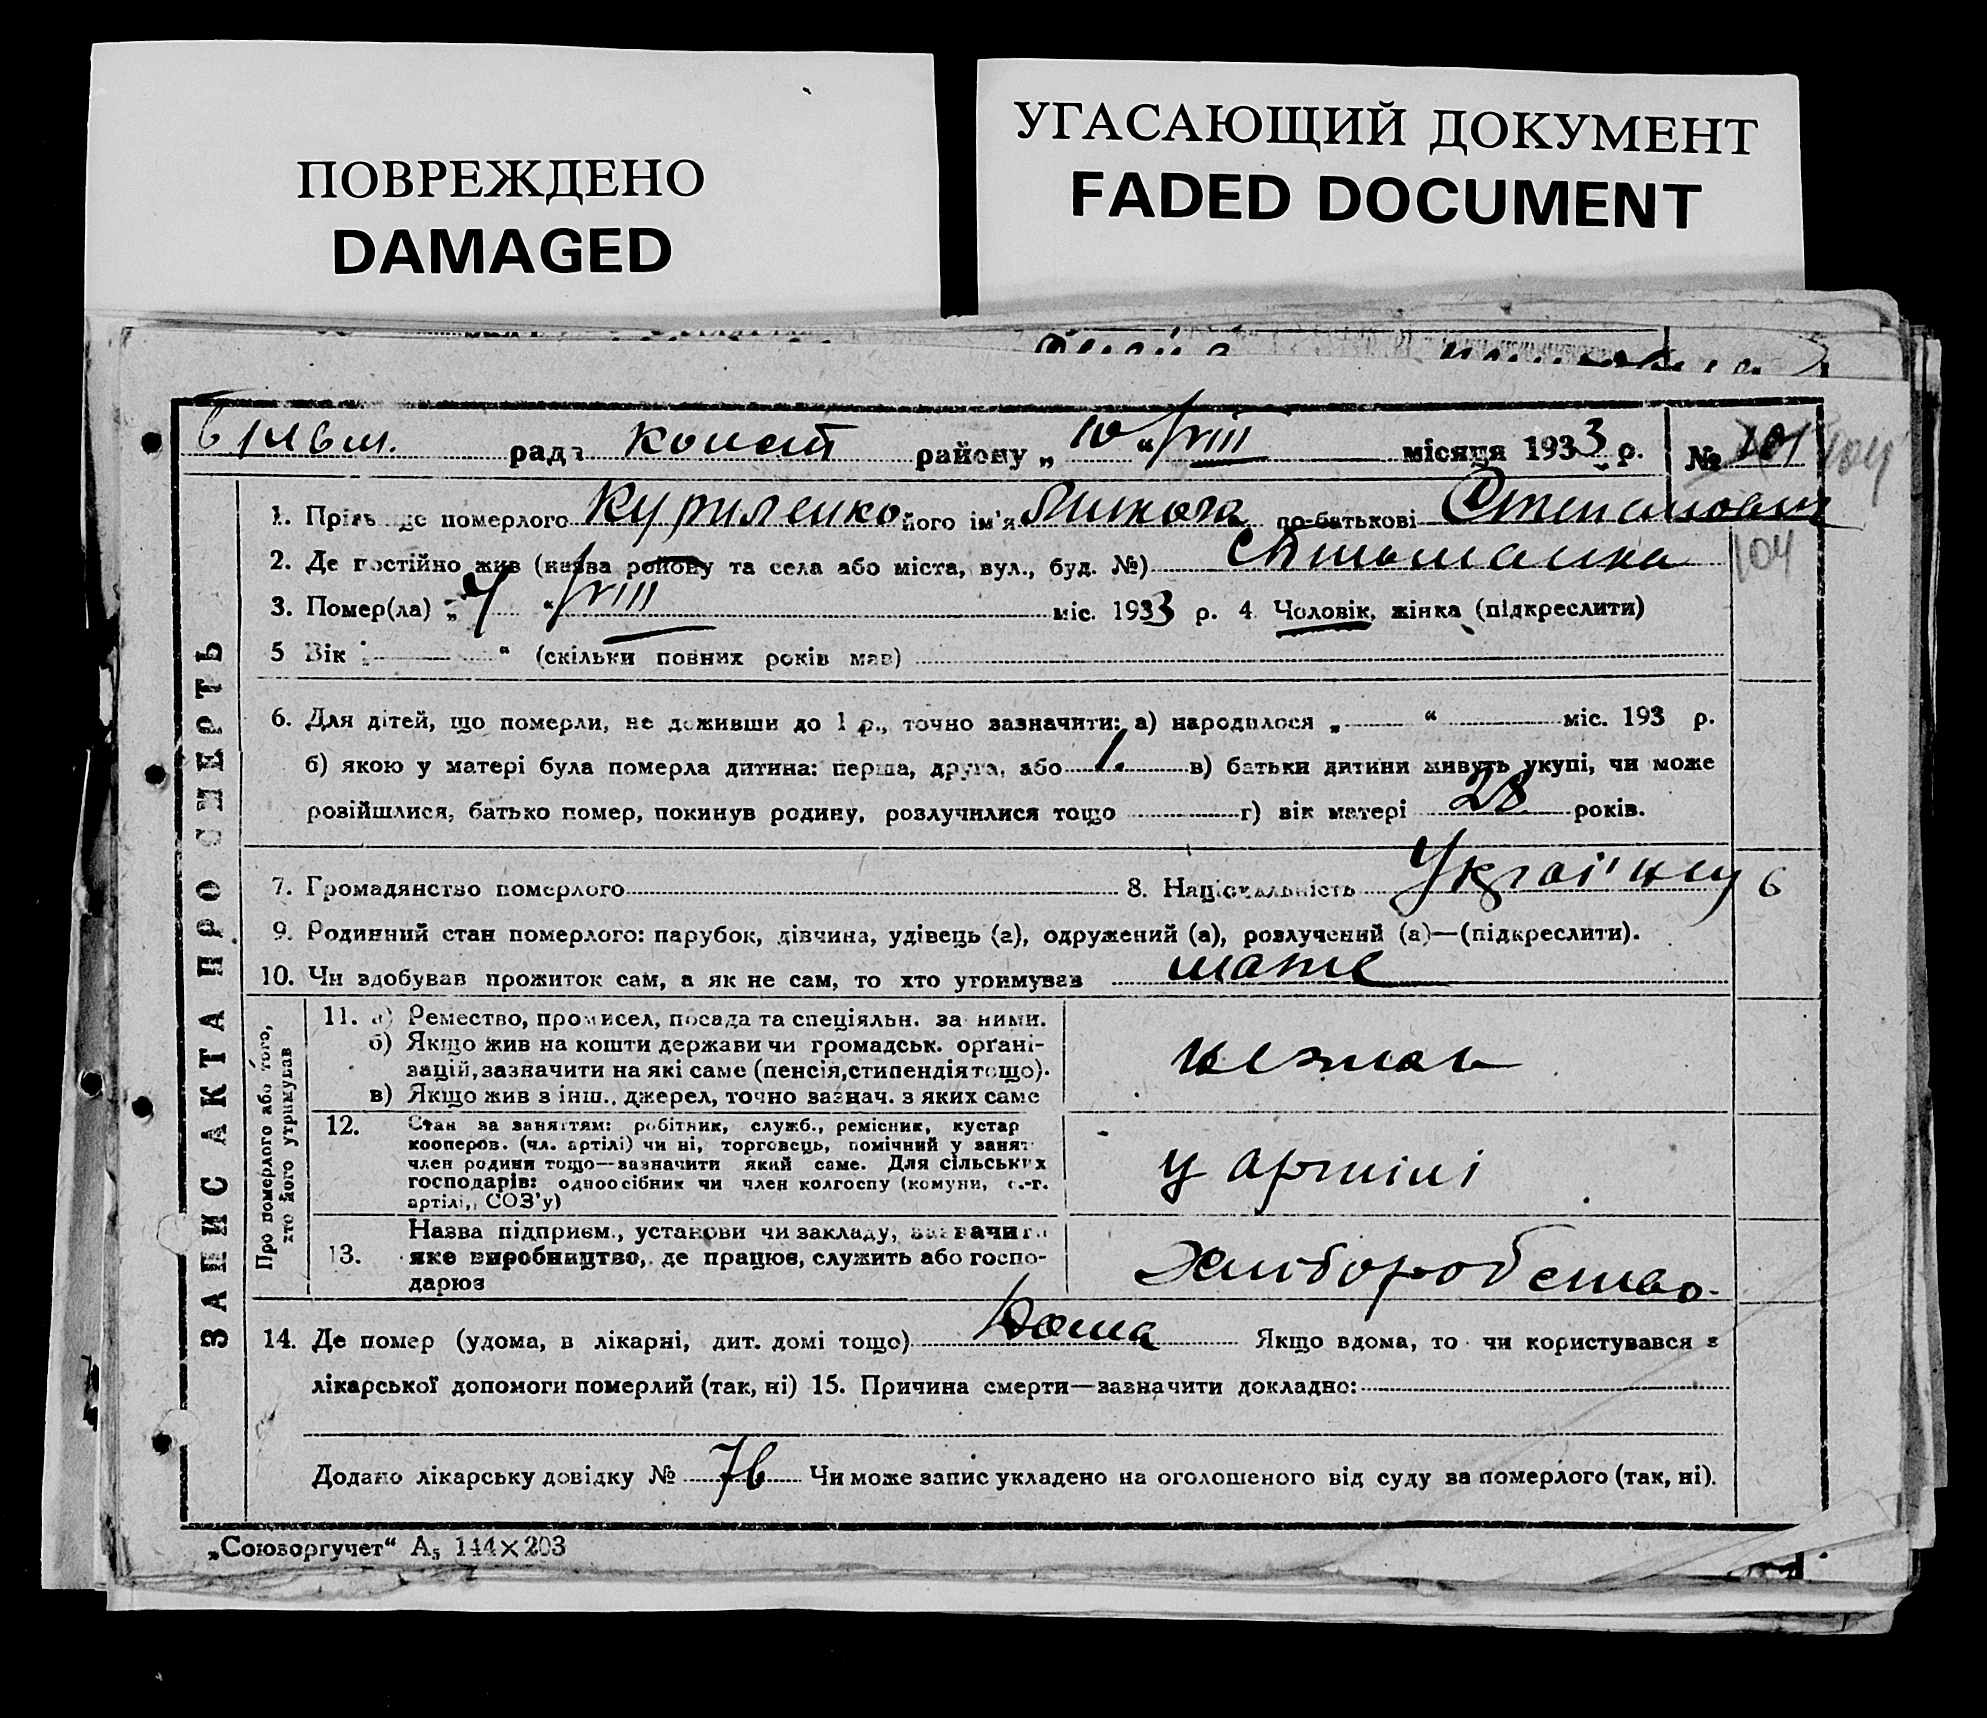 ПОВРЕЖДЕНО
DAMAGED
УГАСАЮЩИЙ ДОКУМЕНТ
FADED DOCUMENT
рада райому „ 10 “ VIII місяця 1933 р. № 101 104
1. Прізвище померлого Куриленко його ім'я Микола по-батькові Степанович
2. Де постійно жив (назва району та села або міста, вул., буд. №) 104
3. Помер(ла) „ 4 “ VIII міс. 1933 р. 4 Чоловік, жінка (підкреслити)
5 Вік „ “ (скільки повних років мав)
6. Для дітей, що померли, не доживши до 1 р., точно зазначити: а) народилося „ “ міс. 193 р.
б) якою у матері була померла дитина: перша, друга, або 1. в) батьки дитини живуть укупі, чи може
розійшлися, батько помер, покинув родину, розлучилися тощо г) вік матері 28 років.
7. Громадянство померлого 8. Національність Україець 6
9. Родинний стан померлого: парубок, дівчина, удівець (а), одружений (а), розлучений (а)—(підкреслити).
10. Чи здобував прожиток сам, а як не сам, то хто утримував мате
ЗАПИС АКТА ПРО СМЕРТЬ
Про померлого або того,
хто його утримував
11. а) Ремество, промисел, посада та спеціяльн. за ними.
б) Якщо жив на кошти держави чи громадськ. орґані-
зацій, зазначити на які саме (пенсія, стипендія тощо).
в) Якщо жив з інш., джерел, точно зазнач. з яких саме
12. Стан за заняттям: робітник, служб., ремісник, кустар
кооперов. (чл. артілі) чи ні, торговець, помічний у занят
член родини тощо—зазначити який саме. Для сільських
господарів: одноосібник чи член колгоспу (комуни, с.-г.
артілі,, СОЗ'у)
у артілі
13. Назва підприєм., установи чи закладу, зазначити
яке виробництво, де працює, служить або госпо-
дарює
Хліборобство.
14. Де помер (удома, в лікарні, дит. домі тощо) Дома Якщо вдома, то чи користувався з
лікарської допомоги померлий (так, ні) 15. Причина смерти—зазначити докладно:
Додано лікарську довідку № 76 Чи може запис укладено на оголошеного від суду за померлого (так, ні).
„Союзоргучет“ А5 144×203